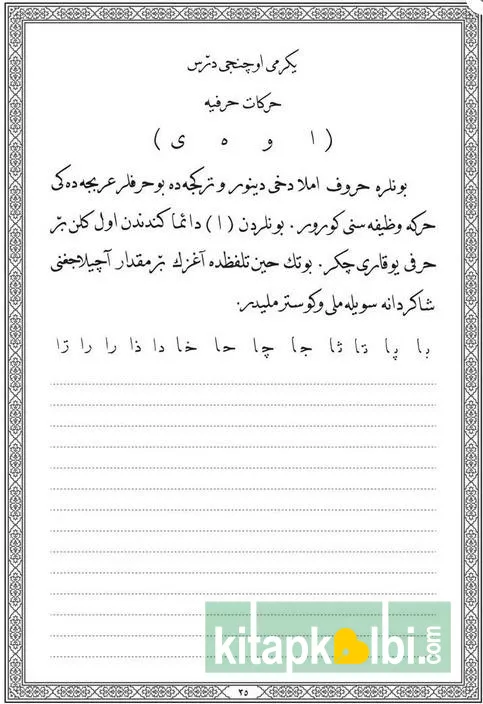 یکرمی اوچنجی درس
حرکات حرفیه
( ا و ه ی )
بونلره حروف املا دخی دینور و ترکجه ده بو حرفلر عربجه ده کی
حرکه وظیفه سنی کورور. بونلردن (ا) دائما کندندن اول کلن بر
حرفی یوقاری چکر. بونك حین تلفظده آغزك بر مقدار آچیلاجغنی
شاکردانه سویله ملی و کوسترملیدر.
با پا تا ثا جا چا حا خا دا ذا را را ژا
kitapkalbi.com
٢٥